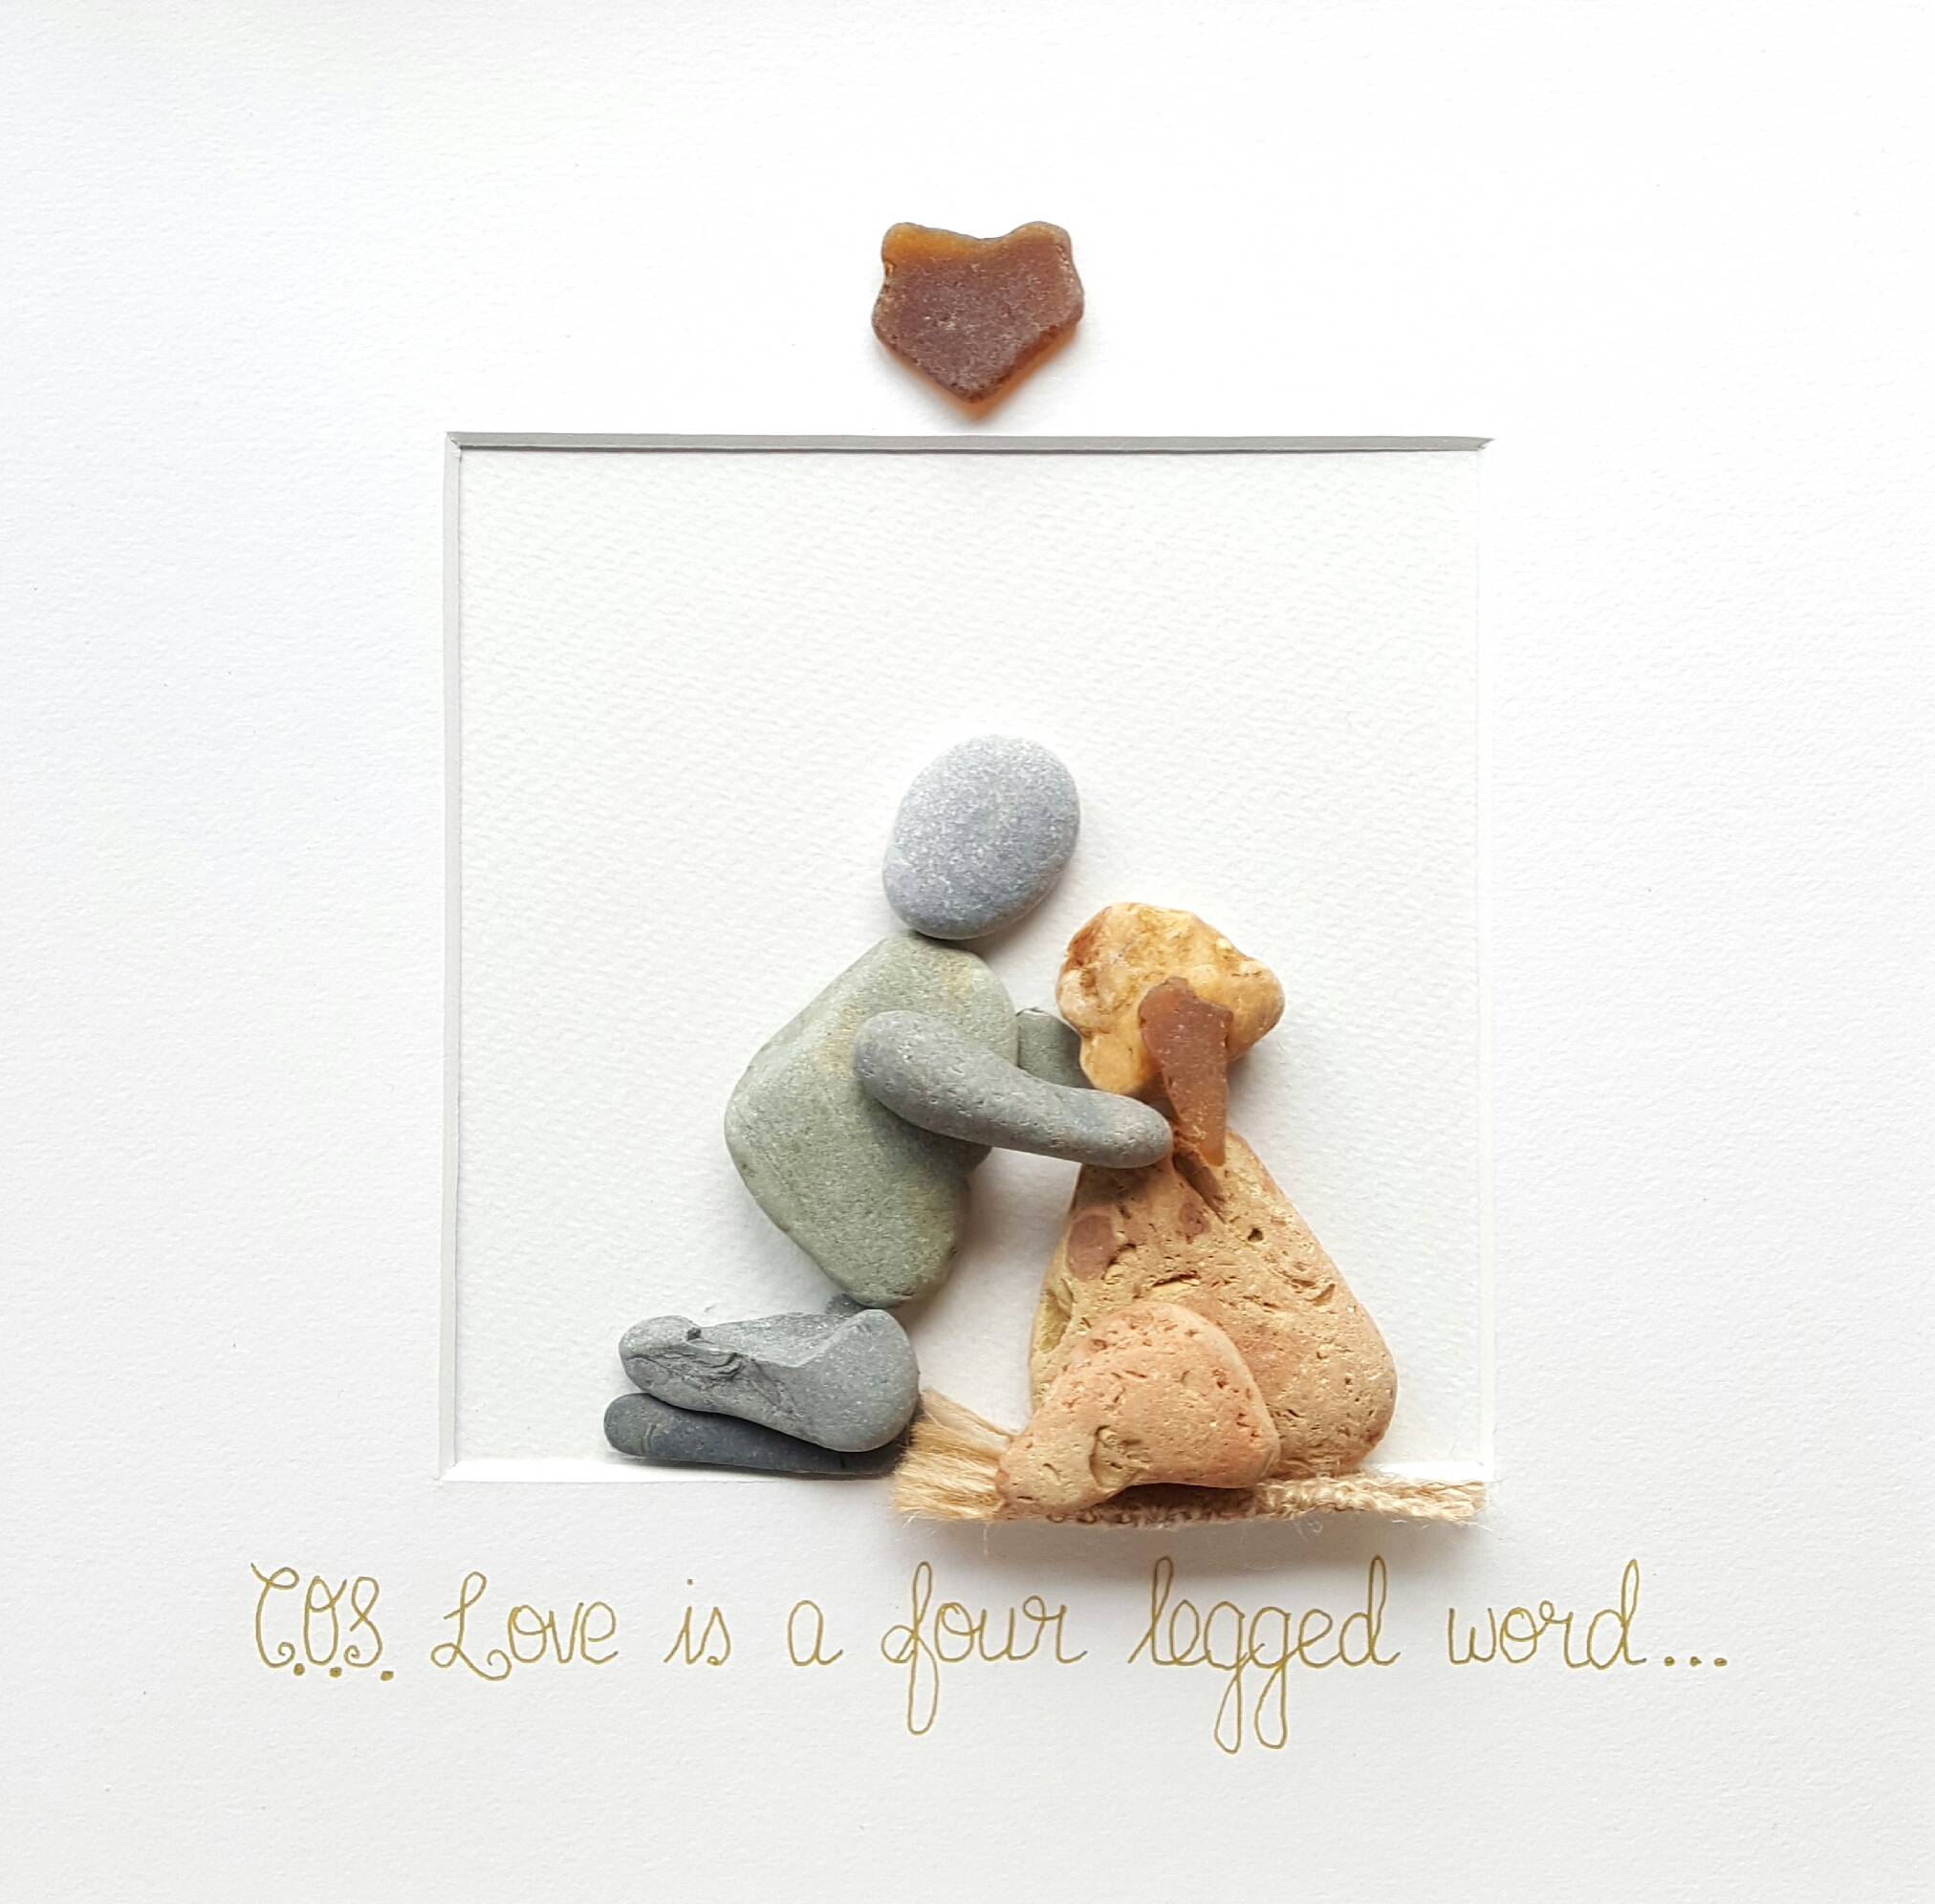 C.O.S. Love is a four legged word...